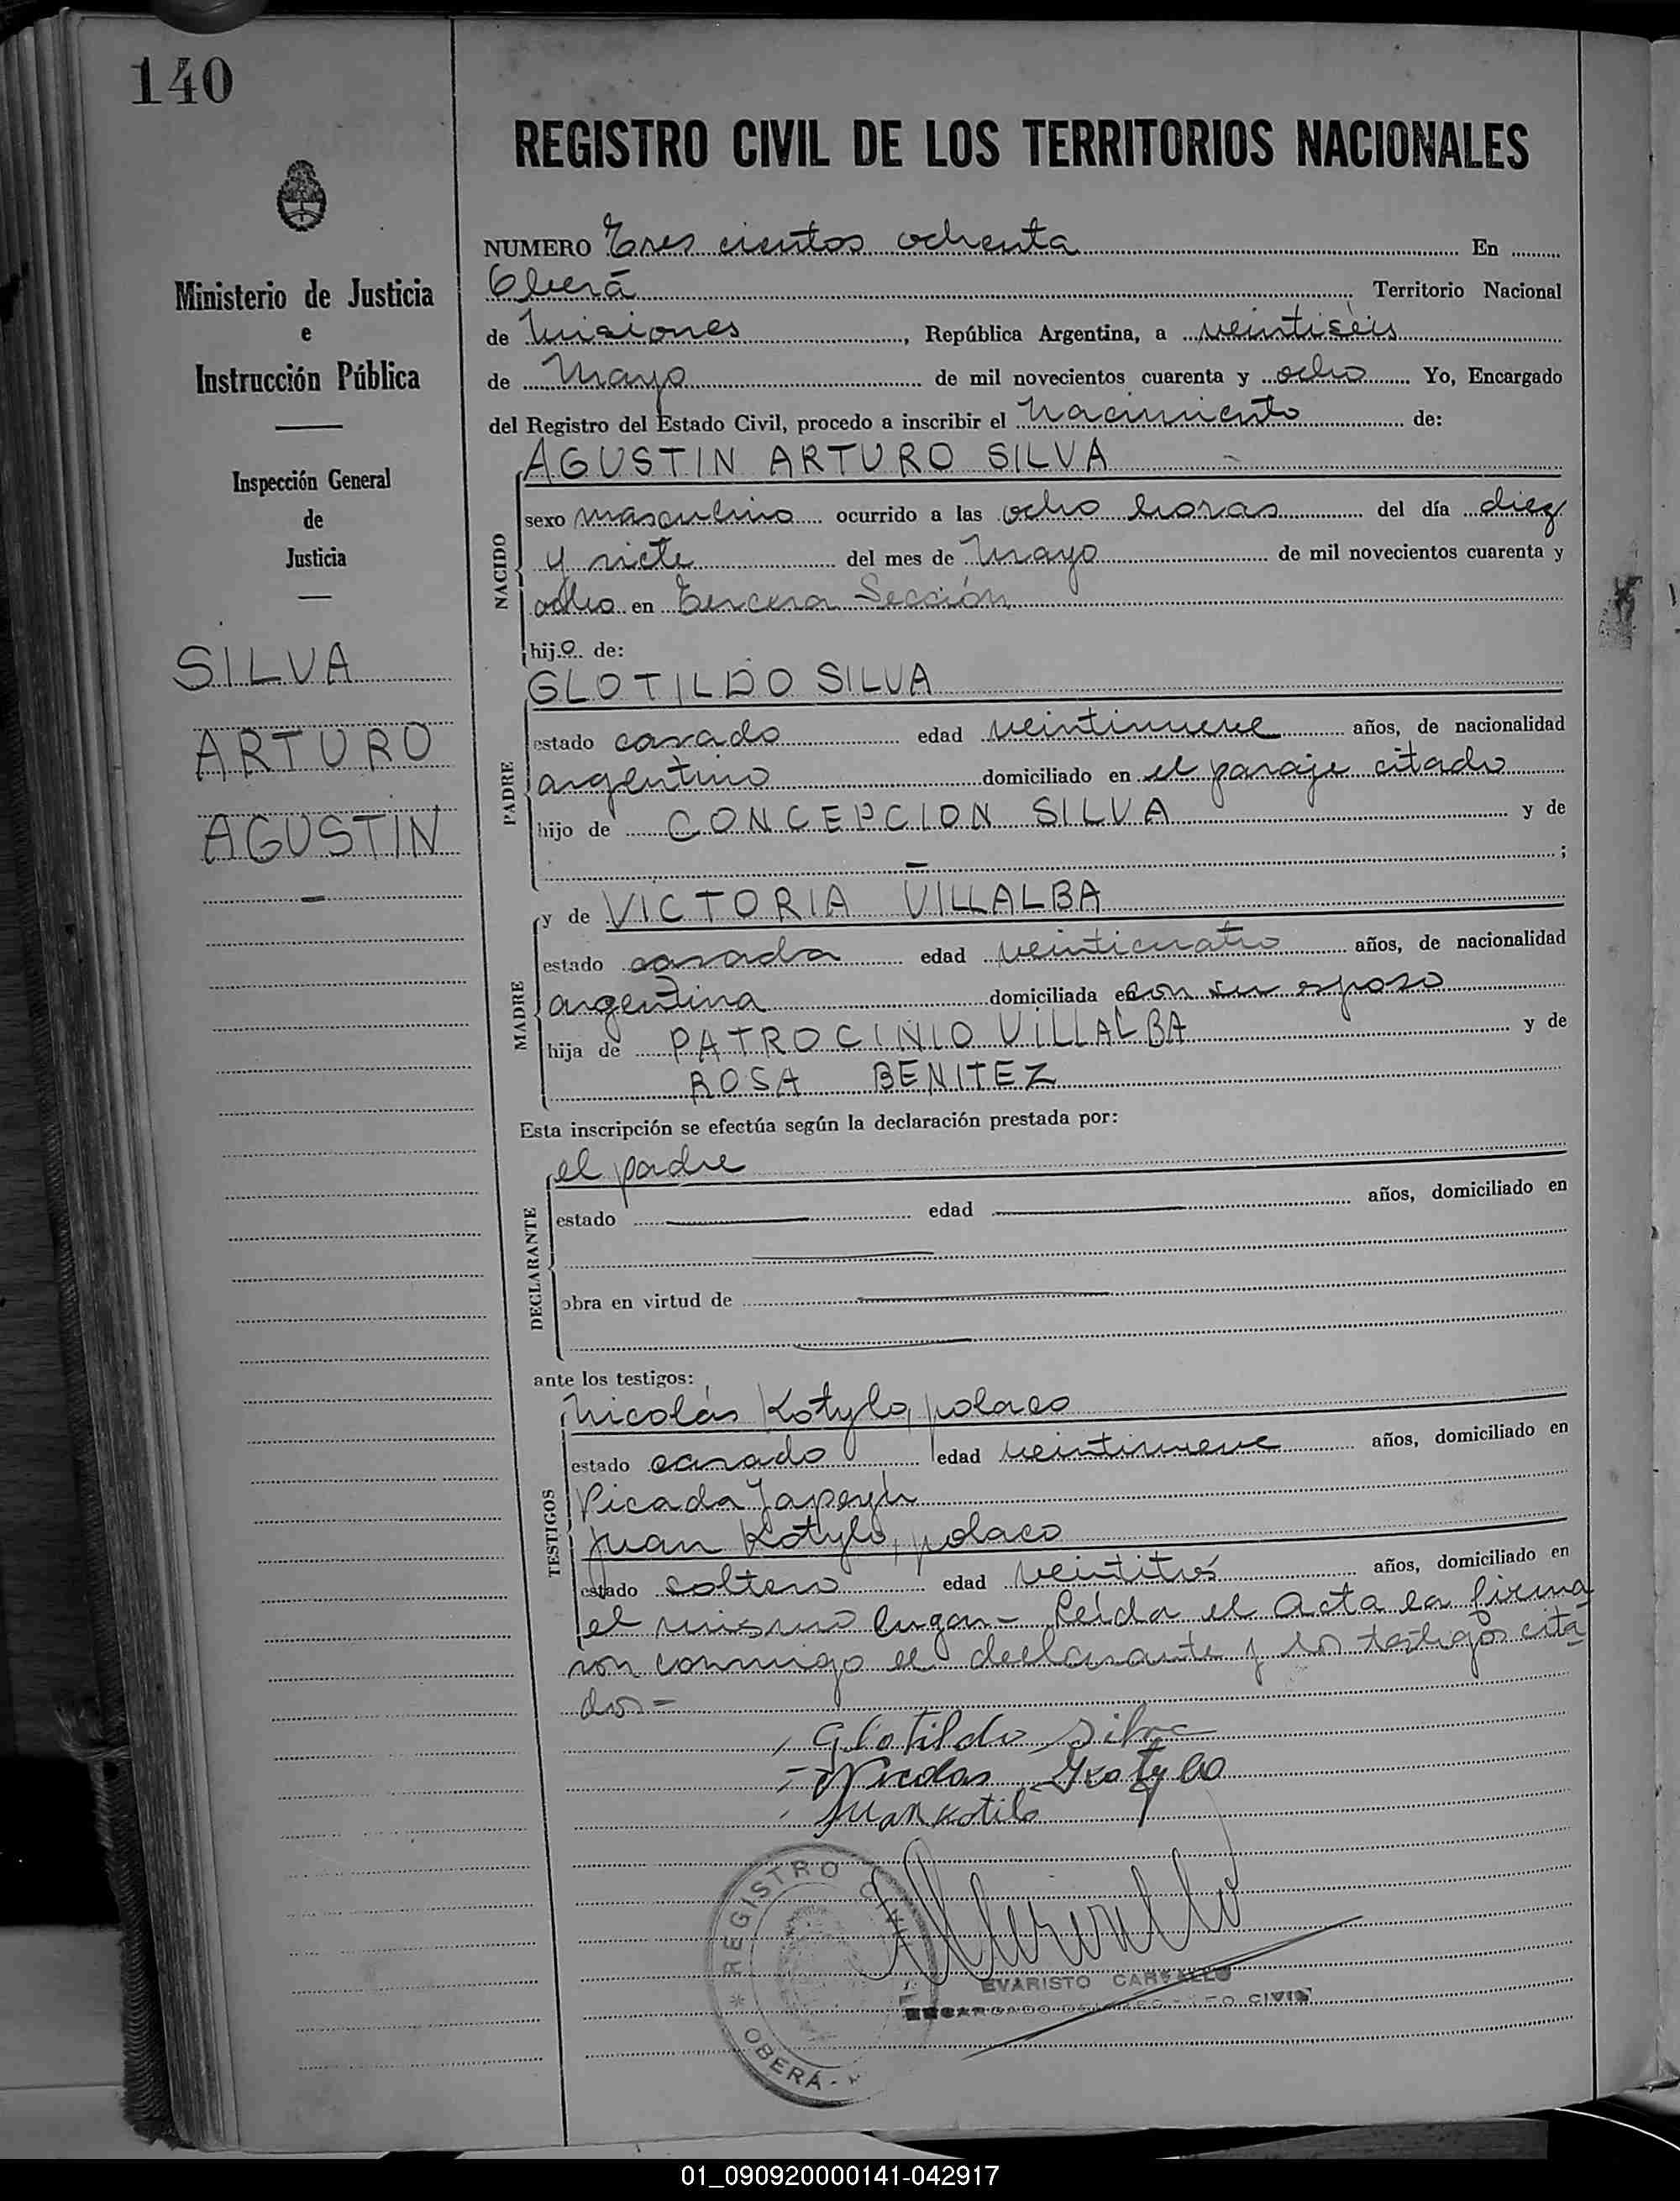 140
REGISTRO CIVIL DE LOS TERRITORIOS NACIONALES
Ministerio de Justicia
e
Instrucción Pública
Inspección General
de
Justicia
SILVA
ARTURO
AGUSTIN
NUMERO Tres cientos ochenta En
Oberá Territorio Nacional
de Misiones, República Argentina, a veintiseis
de Mayo de mil novecientos cuarenta y ocho Yo, Encargado
del Registro del Estado Civil, procedo a inscribir el Nacimiento de:
AGUSTIN ARTURO SILVA
NACIDO
sexo masculino ocurrido a las ocho horas del día diez
y siete del mes de Mayo de mil novecientos cuarenta y
ocho en Tercera Sección
hijo de:
GLOTILDO SILVA
PADRE
estado casado edad veintinueve años, de nacionalidad
argentino domiciliado en el paraje citado
hijo de CONCEPCION SILVA y de
– ;
y de VICTORIA VILLALBA
MADRE
estado casada edad veinticuatro años, de nacionalidad
argentina domiciliada en con su esposo
hija de PATROCINIO VILLALBA y de
ROSA BENITEZ
Esta inscripción se efectúa según la declaración prestada por:
el padre
DECLARANTE
estado edad años, domiciliado en
obra en virtud de
ante los testigos:
Nicolás Kotylo, polaco
TESTIGOS
estado casado edad veintinueve años, domiciliado en
Picada Yapeyú
Juan Kotylo, polaco
estado soltero edad veintitrés años, domiciliado en
el mismo lugar – Leída el Acta la firma
ron conmigo el declarante y los testigos cita
dos =
Glotildo Silva
Nicolas Kotylo
Juan Kotilo
REGISTRO CIVIL
OBERÁ -
EVARISTO CARVALLO
ENCARGADO DEL REGISTRO CIVIL
01_090920000141-042917